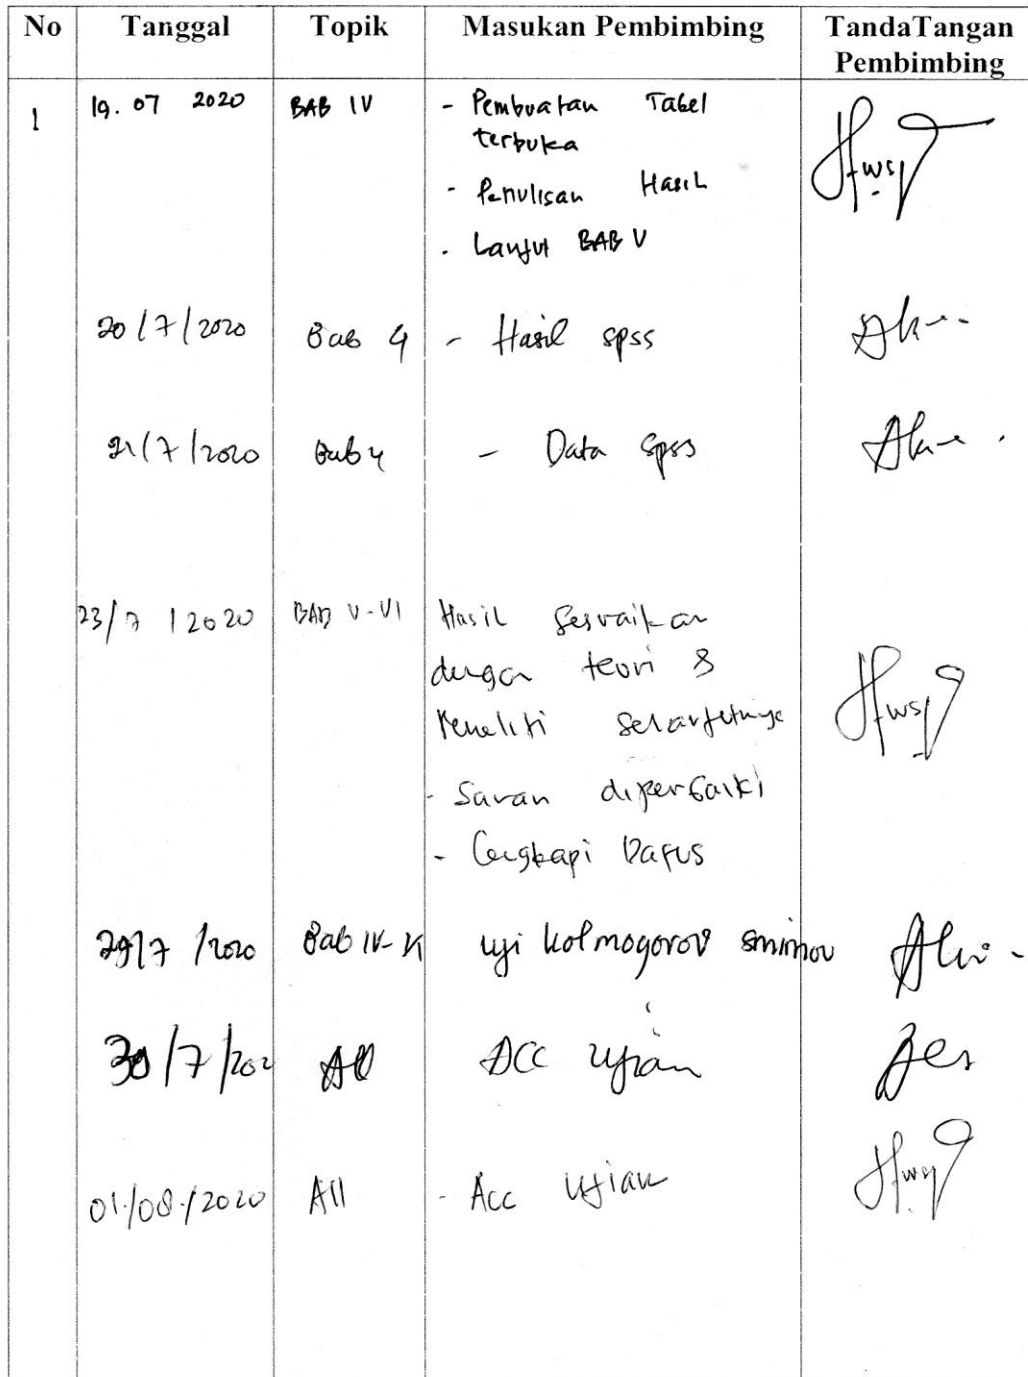 No Tanggal Topik Masukan Pembimbing TandaTangan
Pembimbing
1 19. 07 2020 BAB IV - Pembuatan Tabel
terbuka
- Penulisan Hasil
- Lanjut BAB V
20/7/2020 Bab 4 - Hasil spss
21/7/2020 Bab 4 - Data spss
23/7/2020 BAB V-VI Hasil sesuaikan
dengan teori &
Peneliti selanjutnya
- Saran diperbaiki
- Lengkapi Dapus
29/7/2020 Bab IV- uji kolmogorov smirnov
30/7/202 All ACC ujian
01/08/2020 All - Acc Ujian